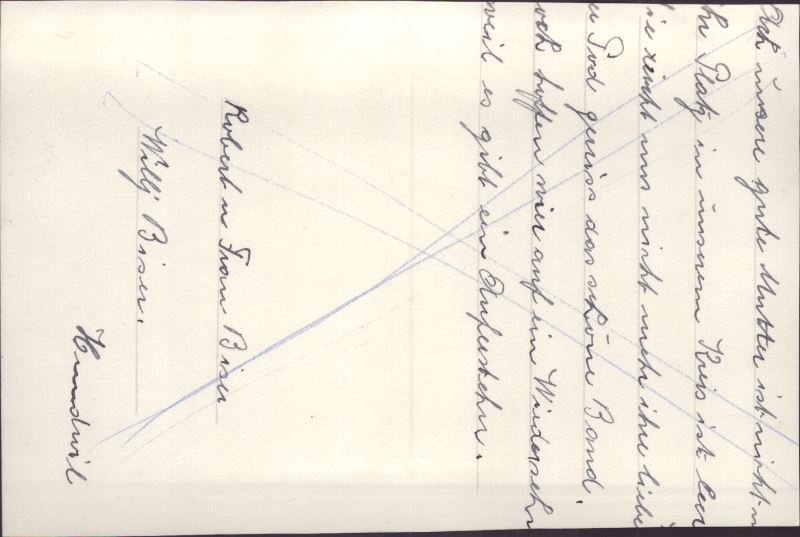 Ach unsere gute Mutter ist nicht
Ihr Platz in unserem Kreis ist leer
Sie reicht uns nicht mehr ihre liebe
Tod zerriss das schöne Band.
och hoffen wir auf ein Wiedersehn
weil es gibt ein Auferstehn.
Robert u Frau Biser
Willj Biser.
Hundwil